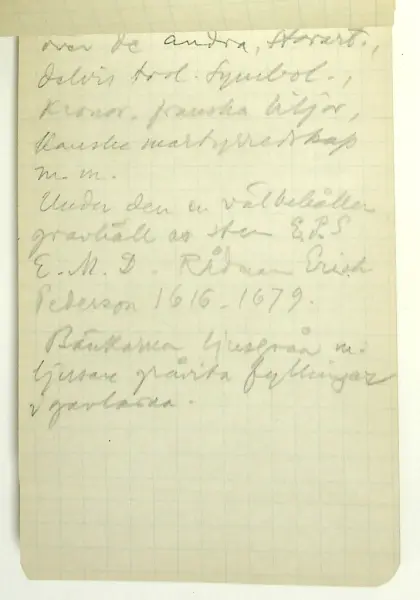 över de andra, Svart.,
delvis Symbol.,
Kronor, franska liljor,
kanske martyrredskap
m.m.
Under den en välbehållen
gravhäll av sten E.P.S
E.M.D. Rådman Erich
Pederson 1616-1679.
Bänkarna ljusgråa m.
ljusare gråvita fyllningar
i gavlarna.